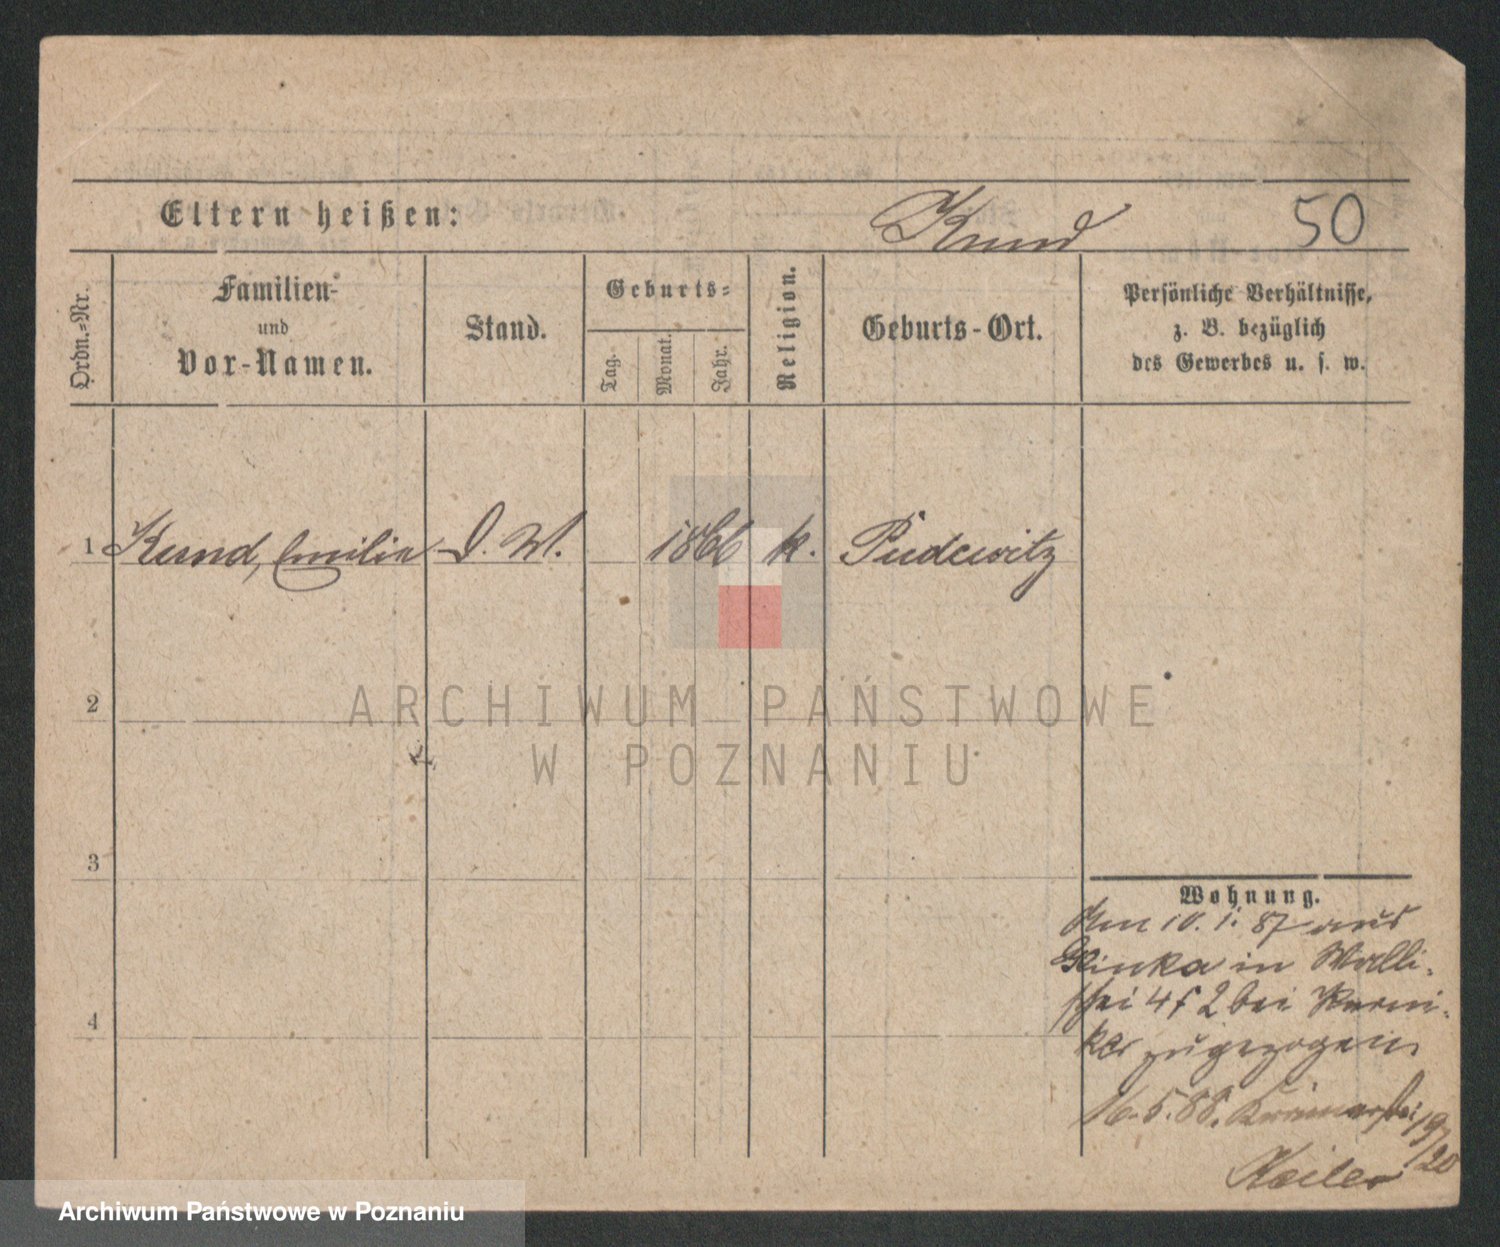 Eltern heißen:
Kund
50
Ordn.=Nr.
Familien-
und
Vor-Namen.
Stand.
Geburts=
Tag.
Monat.
Jahr.
Religion.
Geburts-Ort.
Persönliche Verhältnisse,
z. B. bezüglich
des Gewerbes u. s. w.
1 Kund, Emilie D. M. 1866 k. Pudewitz
2
3
4
ARCHIWUM PAŃSTWOWE
W POZNANIU
Wohnung.
Am 10. 1. 87 aus
Glinka in Walli-
schei 4 f 2 bei
zugezogen
16. 5. 88. 19/20
Archiwum Państwowe w Poznaniu